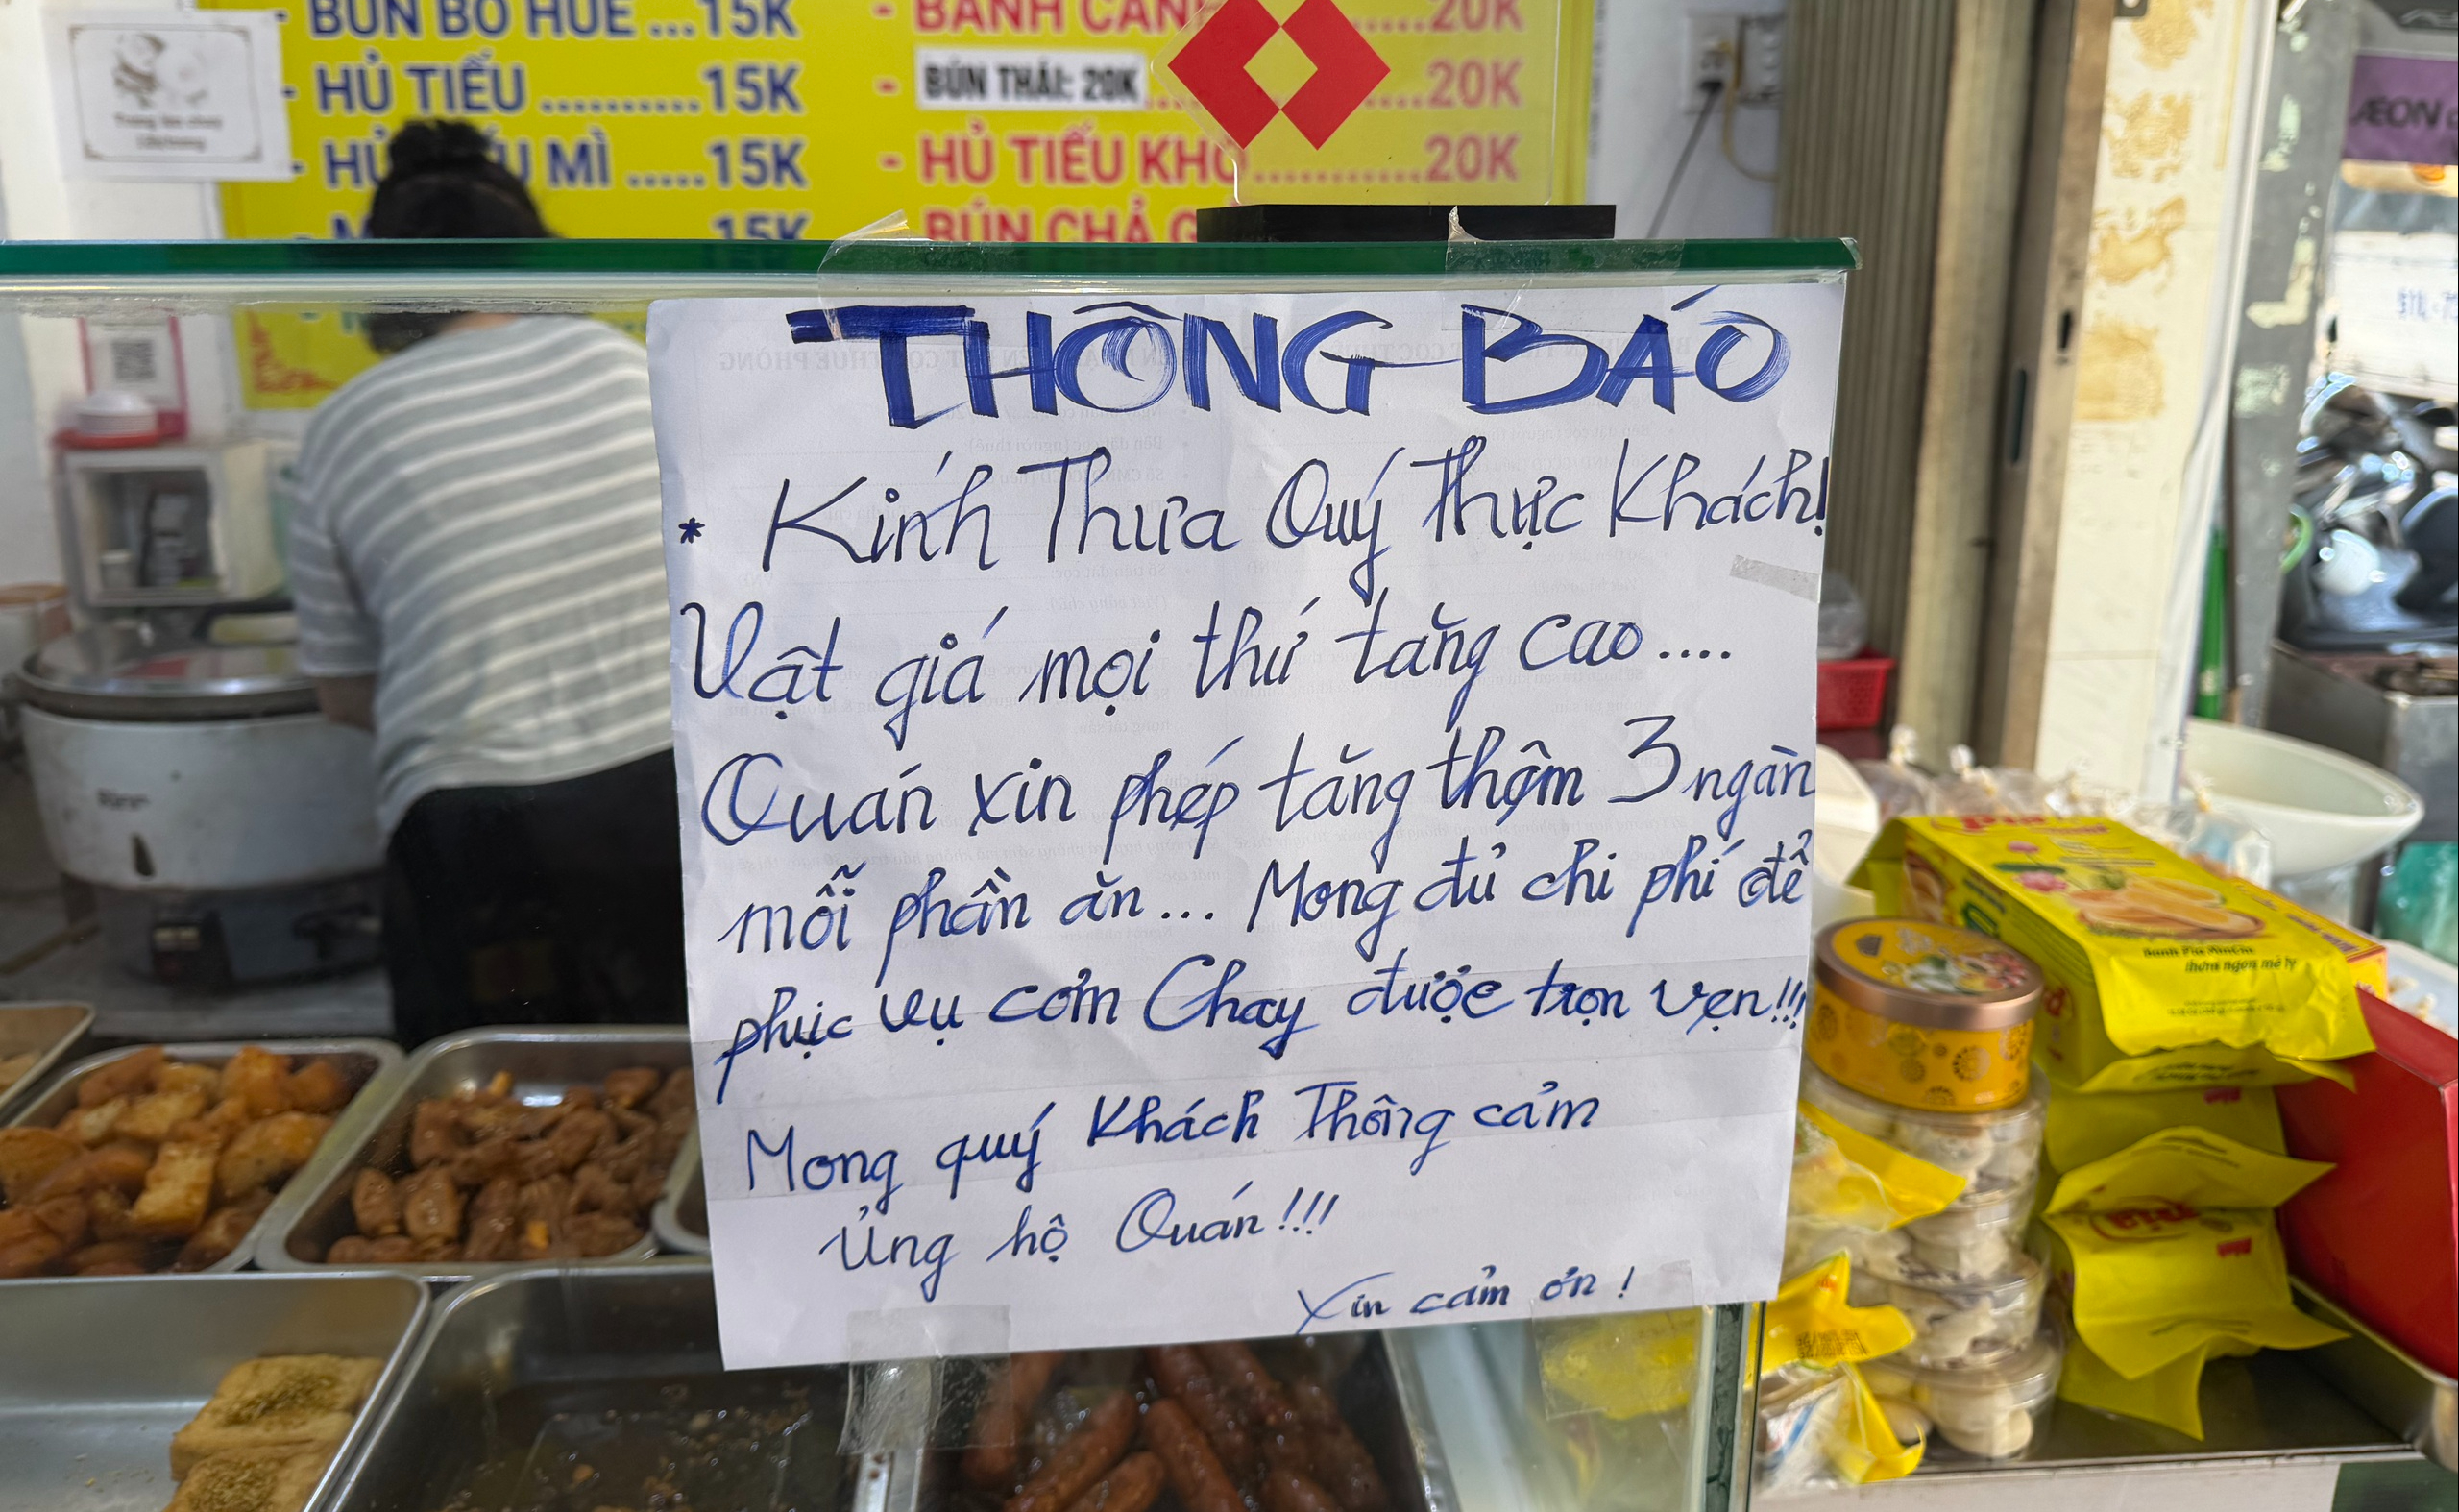 - BÚN BÒ HUẾ ...15K
- HỦ TIẾU ..........15K
MÌ .....15K
15K
20K
- BÚN THÁI: 20K ....20K
- HỦ TIẾU KHÔ ...........20K
- BÚN CHẢ
ÆON
THÔNG BÁO
* Kính Thưa Quý Thực Khách!
Vật giá mọi thứ tăng cao....
Quán xin phép tăng thêm 3 ngàn
mỗi phần ăn... Mong đủ chi phí để
phục vụ cơm Chay được trọn vẹn!!!
Mong quý Khách Thông cảm
ủng hộ Quán!!!
Xin cảm ơn!
thơm ngon mê ly